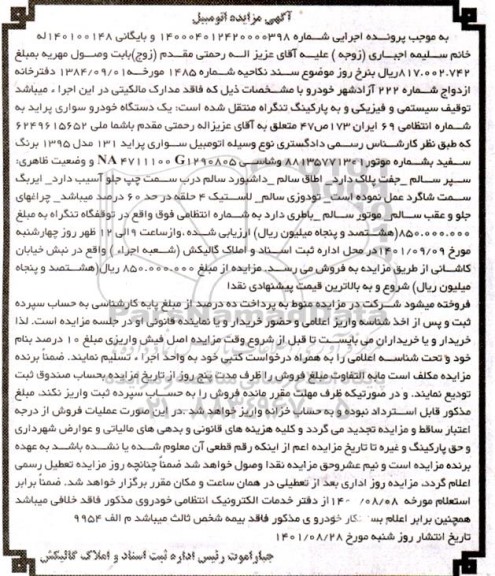 آگهی مزایده اتومبیل
به موجب پرونده اجرایی شماره ۱۴۰۰۰۴۰۱۲۴۲۰۰۰۰۳۹۸ و بایگانی ۱۴۰۱۰۰۱۴۸له
خانم سلیمه اجباری (زوجه ) علیه آقای عزیز اله رحمتی مقدم (زوج)بابت وصول مهریه بمبلغ
۸۱۷.۰۰۲.۷۴۲ریال بنرخ روز موضوع سند نکاحیه شماره ۱۴۸۵ مورخه۱۳۸۴/۰۹/۰۱ دفترخانه
ازدواج شماره ۲۲۲ آزادشهر خودرو با مشخصات ذیل که فاقد مدارک مالکیتی در این اجرا ، میباشد
توقیف سیستمی و فیزیکی و به پارکینگ تنگراه منتقل شده است: یک دستگاه خودرو سواری پراید به
شماره انتظامی ۶۹ ایران ۱۷۳ص۴۷ متعلق به آقای عزیزاله رحمتی مقدم باشما ملی ۶۲۴۹۶۱۵۶۵۲
که طبق نظر کارشناس رسمی دادگستری نوع وسیله اتومبیل سواری پراید ۱۳۱ مدل ۱۳۹۵ برنگ
سفید بشماره موتور ۸۸۱۳۵۷۷۱۳۰۱ وشاسی NA ۴۷۱۱۱۰۰ G۱۲۹۰۸۰۵ و وضعیت ظاهری:
سپر سالم _جفت پلاک دارد_ اطاق سالم _داشبورد سالم درب سمت چپ جلو آسیب دارد_ ایربک
سمت شاگرد عمل نموده است_ تودوزی سالم_ لاستیک ۴ حلقه در حد ۶۰ درصد میباشد_ چراغهای
جلو و عقب سالم_ موتور سالم _باطری دارد به شماره انتظامی فوق واقع در توقفگاه تنگراه به مبلغ
۸۵۰.۰۰۰.۰۰۰(هشتصد و پنجاه میلیون ریال) ارزیابی شده .وازساعت ۹الی ۱۲ ظهر روز چهارشنبه
مورخ ۱۴۰۱/۰۹/۰۹در محل اداره ثبت اسناد و املاک گالیکش (شعبه اجراء ) واقع در نبش خیابان
کاشانی از طریق مزایده به فروش می رسد. مزایده از مبلغ ۸۵۰.۰۰۰.۰۰۰ ریال(هشتصد و پنجاه
میلیون ریال) شروع و به بالاترین قیمت پیشنهادی نقدا
فروخته میشود شرکت در مزایده منوط به پرداخت ده درصد از مبلغ پایه کارشناسی به حساب سپرده
ثبت و پس از اخذ شناسه واریز اعلامی و حضور خریدار و یا نماینده قانونی او در جلسه مزایده است. لذا
خریدار و یا خریداران می بایست تا قبل از شروع وقت مزایده اصل فیش واریزی مبلغ ۱۰ درصد بنام
خود و تحت شناسه اعلامی را به همراه درخواست کتبی خود به واحد اجرا ، تسلیم نمایند. ضمنا برنده
مزایده مکلف است مابه التفاوت مبلغ فروش را ظرف مدت پنج روز از تاریخ مزایده بحساب صندوق ثبت
تودیع نمایند. و در صورتیکه ظرف مهلت مقرر مانده فروش را به حساب سپرده ثبت واریز نکند. مبلغ
مذکور قابل استرداد نبوده و به حساب خزانه واریز خواهد شد .در این صورت عملیات فروش از درجه
اعتبار ساقط و مزایده تجدید می گردد و کلیه هزینه های قانونی و بدهی های مالیاتی و عوارض شهرداری
و حق پارکینگ و غیره تا تاریخ مزایده اعم از اینکه رقم قطعی آن معلوم شده یا نشده باشد به عهده
برنده مزایده است و نیم عشروحق مزایده نقدا وصول خواهد شد ضمناً چنانچه روز مزایده تعطیل رسمی
اعلام گردد، مزایده روز اداری بعد از تعطیلی در همان ساعت و مکان مقرر برگزار خواهد شد. ضمناً برابر
استعلام مورخه /۰۸/۰۸ از دفتر خدمات الکترونیک انتظامی خودروی مذکور فاقد خلافی میباشد
همچنین برابر اعلام خودرو ی مذکور فاقد بیمه شخص ثالث میباشد م الف ۹۹۵۴
تاریخ انتشار روز شنبه مورخ ۱۴۰۱/۰۸/۲۸
جبارآموت رئیس اداره ثبت اسناد و املاک گالیکش
ParsNamadData